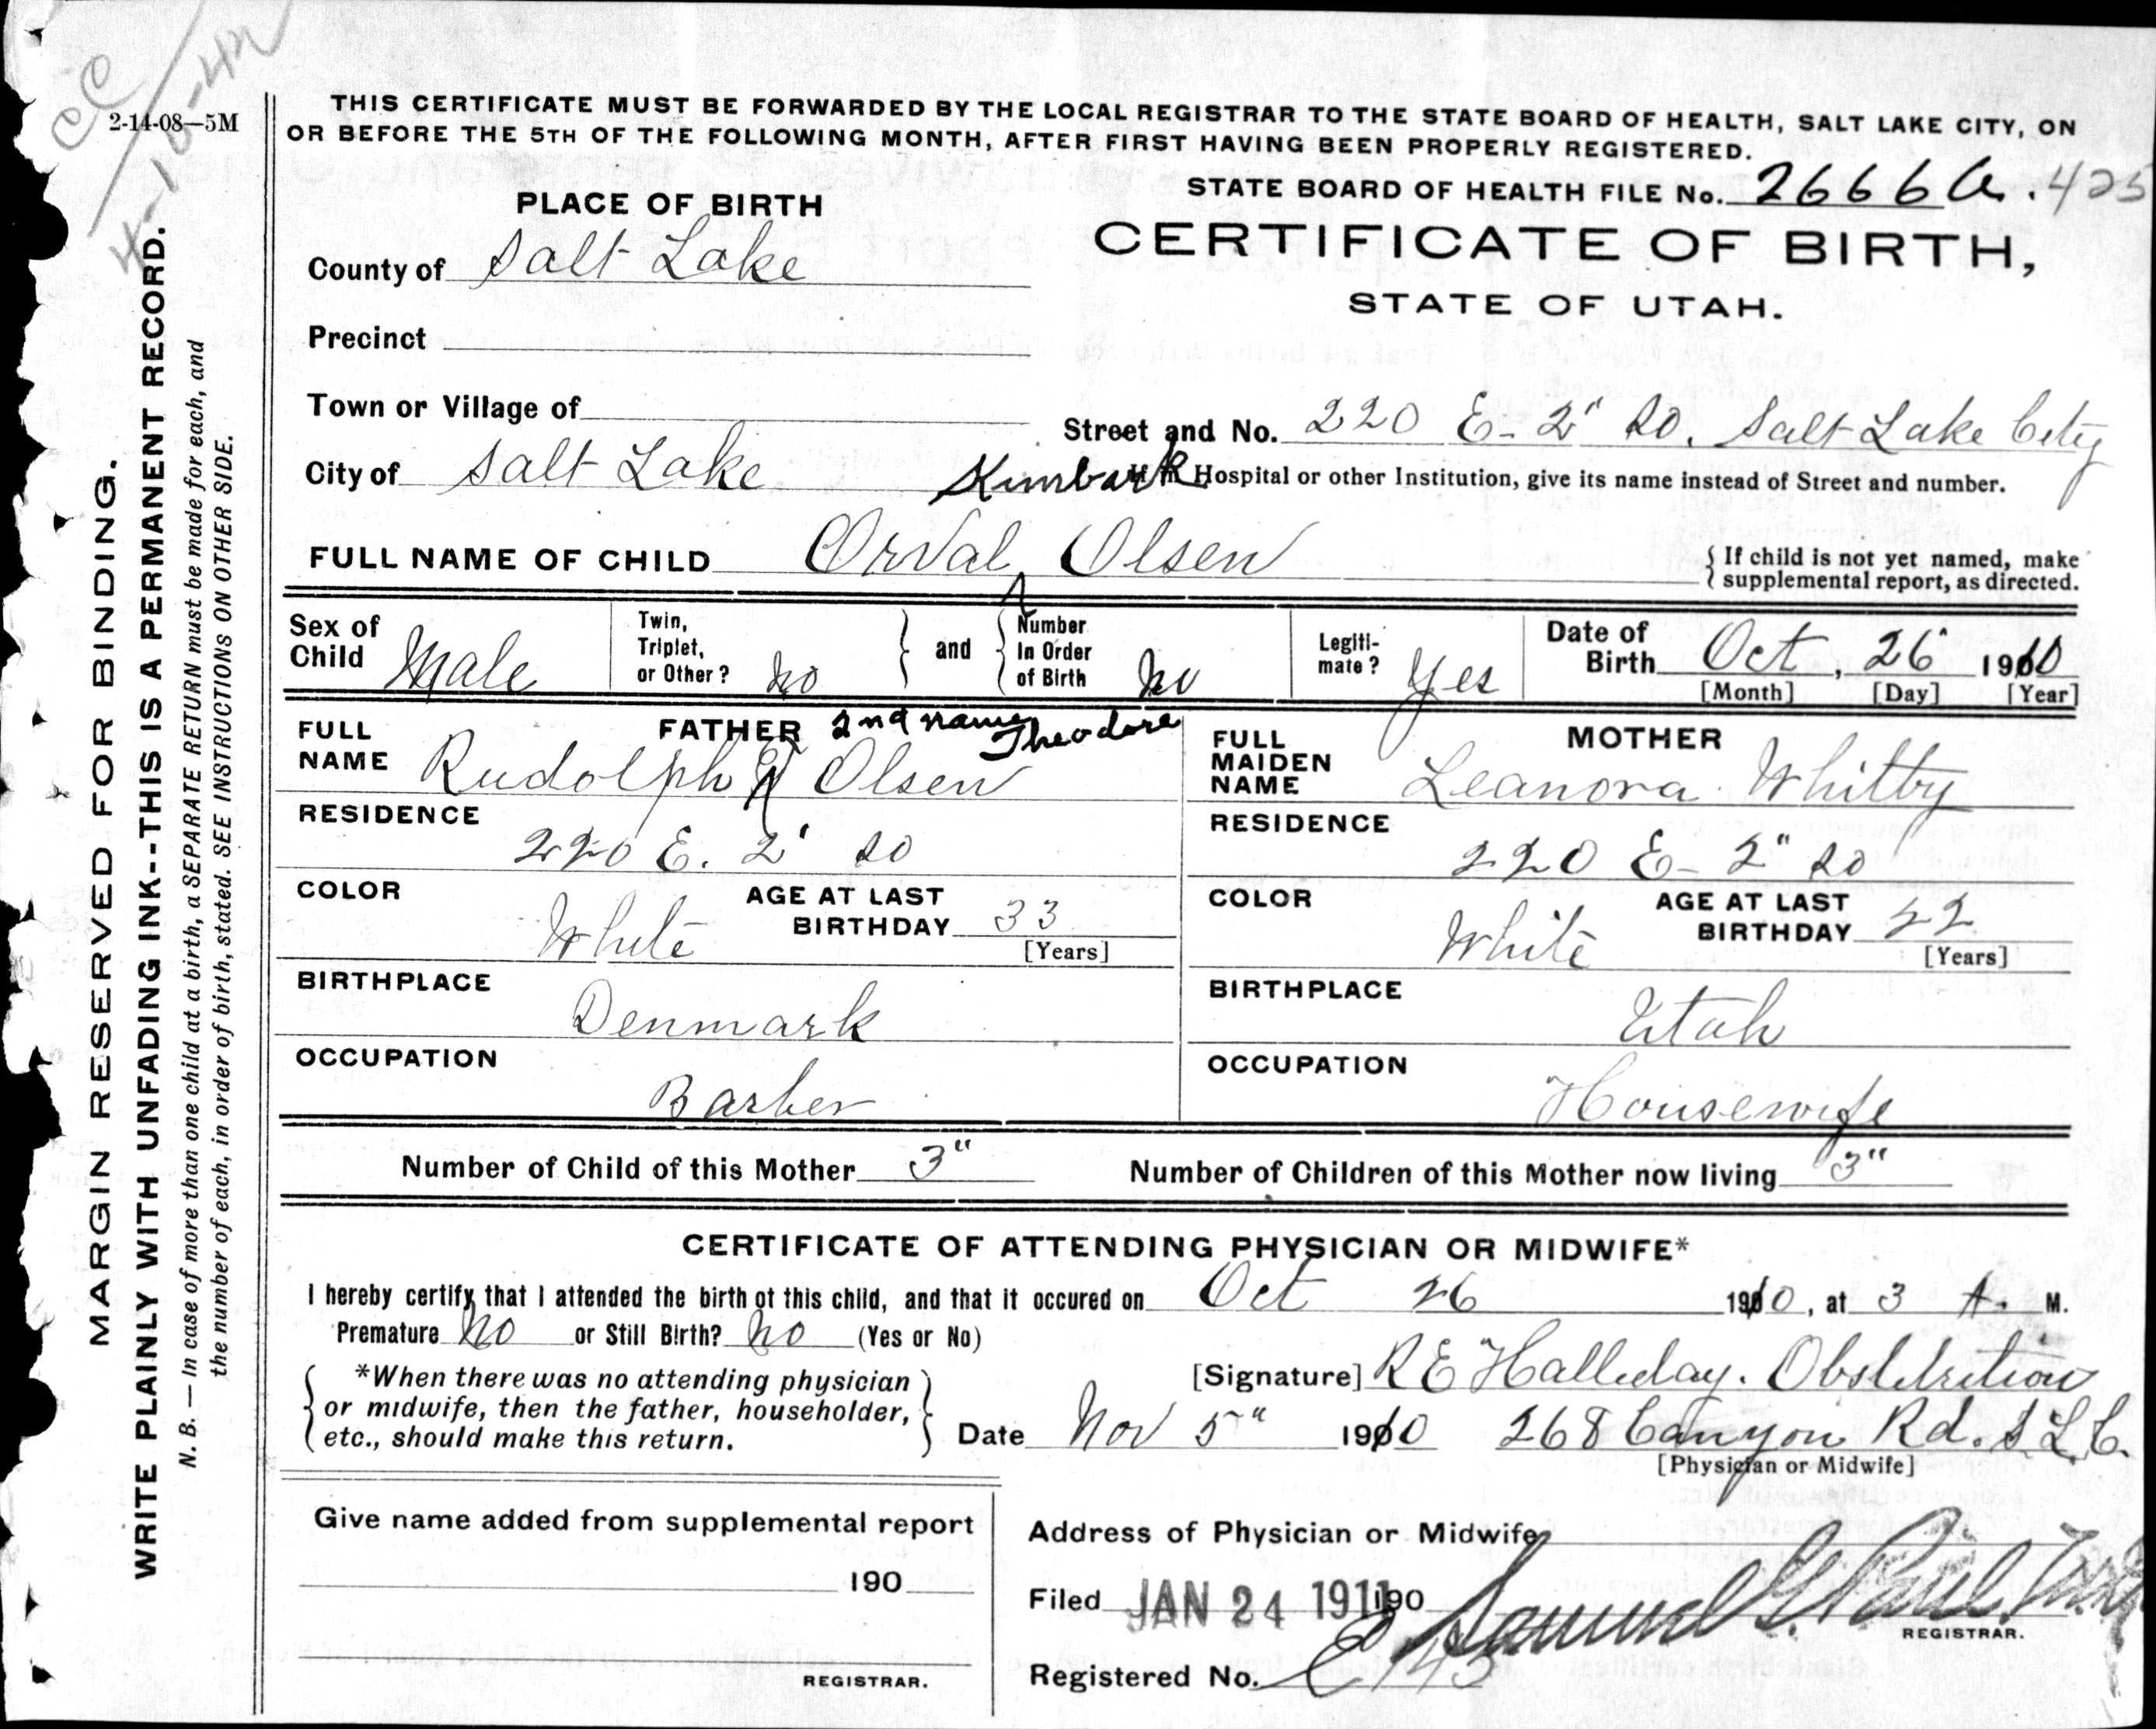 CC
4-10-42
2-14-08—5M
THIS CERTIFICATE MUST BE FORWARDED BY THE LOCAL REGISTRAR TO THE STATE BOARD OF HEALTH, SALT LAKE CITY, ON
OR BEFORE THE 5TH OF THE FOLLOWING MONTH, AFTER FIRST HAVING BEEN PROPERLY REGISTERED.
STATE BOARD OF HEALTH FILE No. 2666 a. 425
PLACE OF BIRTH
CERTIFICATE OF BIRTH,
STATE OF UTAH.
County of Salt Lake
Precinct
Town or Village of
Street and No. 220 E- 2" So. Salt Lake City
City of Salt Lake
If in Hospital or other Institution, give its name instead of Street and number.
Kimbark
FULL NAME OF CHILD Orval Olsen
{ If child is not yet named, make
supplemental report, as directed.
Sex of Child Male
Twin, Triplet, or Other? no
and
Number In Order of Birth no
Legiti-mate? Yes
Date of Birth Oct, 26 1910
[Month] [Day] [Year]
FATHER
2nd name Theodore
FULL NAME Rudolph T Olsen
RESIDENCE
220 E. 2' So
COLOR White
AGE AT LAST BIRTHDAY 33
[Years]
BIRTHPLACE
Denmark
OCCUPATION
Barber
MOTHER
FULL MAIDEN NAME Leanora Whitby
RESIDENCE
220 E- 2" So
COLOR White
AGE AT LAST BIRTHDAY 22
[Years]
BIRTHPLACE
Utah
OCCUPATION
Housewife
Number of Child of this Mother 3"
Number of Children of this Mother now living 3"
CERTIFICATE OF ATTENDING PHYSICIAN OR MIDWIFE*
I hereby certify that I attended the birth of this child, and that it occured on Oct 26 1910, at 3 A. M.
Premature No or Still Birth? No (Yes or No)
*When there was no attending physician
or midwife, then the father, householder,
etc., should make this return.
[Signature] R E Halliday. Obstetrition
Date Nov 5" 1910 268 Canyon Rd. S L C.
[Physician or Midwife]
Give name added from supplemental report
190
REGISTRAR.
Address of Physician or Midwife
Filed JAN 24 1911 190
Samuel G. Paul
REGISTRAR.
Registered No.
MARGIN RESERVED FOR BINDING.
WRITE PLAINLY WITH UNFADING INK--THIS IS A PERMANENT RECORD.
N. B. — In case of more than one child at a birth, a SEPARATE RETURN must be made for each, and
the number of each, in order of birth, stated. SEE INSTRUCTIONS ON OTHER SIDE.